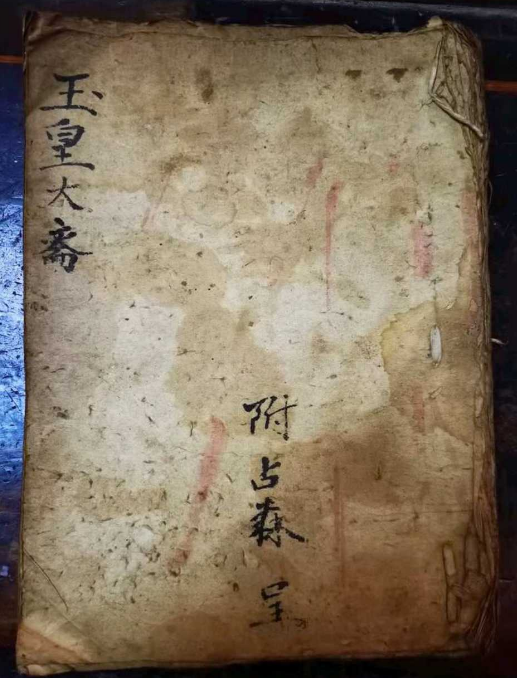 玉皇大斋
附占森 呈